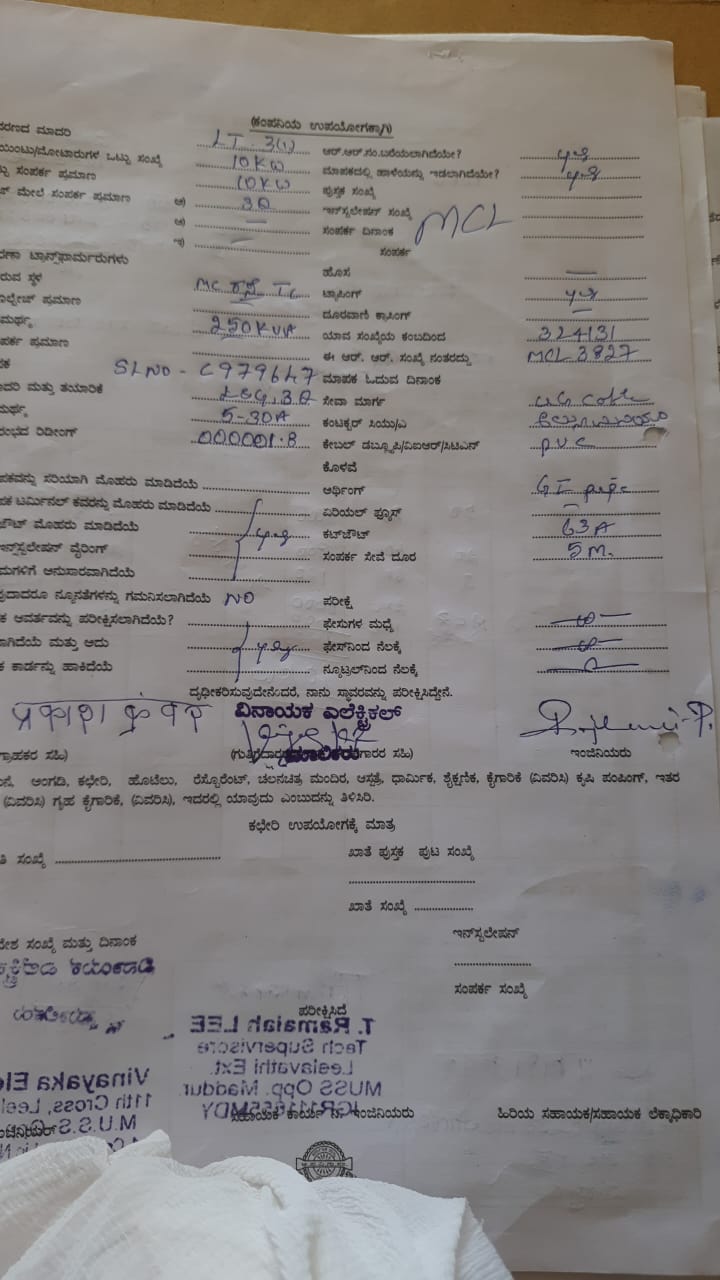 (ಕಂಪನಿಯ ಉಪಯೋಗಕ್ಕಾಗಿ)
ಮಾದರಿ LT-3(1) ಆರ್.ಆರ್.ಸಂ.ಬರೆಯಲಾಗಿದೆಯೇ? yes
ಒಟ್ಟು ಸಂಖ್ಯೆ 10KW ಮಾಪಕದಲ್ಲಿ ಹಾಳೆಯನ್ನು ಇಡಲಾಗಿದೆಯೇ? yes
ಸಂಪರ್ಕ ಪ್ರಮಾಣ 10KW ಪುಸ್ತಕ ಸಂಖ್ಯೆ
ಮೇಲೆ ಸಂಪರ್ಕ ಪ್ರಮಾಣ ಅ) 3Ø ಇನ್‌ಸ್ಟಲೇಷನ್ ಸಂಖ್ಯೆ MCL
ಆ) — ಸಂಪರ್ಕ ದಿನಾಂಕ
ಇ) — ಸಂಪರ್ಕ
ಟ್ರಾನ್ಸ್‌ಫಾರ್ಮರುಗಳು
ಸ್ಥಳ ಹೊಸ —
ಪ್ರಮಾಣ MC TC ಟ್ಯಾಪಿಂಗ್ yes
250KVA ದೂರವಾಣಿ ಕ್ರಾಸಿಂಗ್ —
ಪ್ರಮಾಣ ಯಾವ ಸಂಖ್ಯೆಯ ಕಂಬದಿಂದ 324131
ಈ ಆರ್. ಆರ್. ಸಂಖ್ಯೆ ನಂತರದ್ದು MCL 3827
SLNO - C979647 ಮಾಪಕ ಓದುವ ದಿನಾಂಕ
ಮತ್ತು ತಯಾರಿಕೆ L&G, 3Ø ಸೇವಾ ಮಾರ್ಗ UG Cable
5-30A ಕಂಟಕ್ಟರ್ ಸಿಯು/ಎ
ರೀಡಿಂಗ್ 000001.8 ಕೇಬಲ್ ಡಬ್ಲ್ಯೂಪಿ/ವಿಐಆರ್/ಸಿಟಿಎಸ್ PVC
ಕೊಳವೆ
ಸರಿಯಾಗಿ ಮೊಹರು ಮಾಡಿದೆಯೆ ಆರ್ಥಿಂಗ್ GI pipe
ಟರ್ಮಿನಲ್ ಕವರನ್ನು ಮೊಹರು ಮಾಡಿದೆಯೆ ಏರಿಯಲ್ ಫ್ಯೂಸ್ —
ಮೊಹರು ಮಾಡಿದೆಯೆ yes ಕಟ್‌ಔಟ್ 63A
ವೈರಿಂಗ್ ಸಂಪರ್ಕ ಸೇವೆ ದೂರ 5M.
ಅನುಸಾರವಾಗಿದೆಯೆ
ನ್ಯೂನತೆಗಳನ್ನು ಗಮನಿಸಲಾಗಿದೆಯೆ NO ಪರೀಕ್ಷೆ
ಆವರ್ತವನ್ನು ಪರೀಕ್ಷಿಸಲಾಗಿದೆಯೆ? ಫೇಸುಗಳ ಮಧ್ಯೆ
ಮತ್ತು ಅದು yes ಫೇಸ್‌ನಿಂದ ನೆಲಕ್ಕೆ
ಕಾರ್ಡನ್ನು ಹಾಕಿದೆಯೆ ನ್ಯೂಟ್ರಲ್‌ನಿಂದ ನೆಲಕ್ಕೆ
ದೃಢೀಕರಿಸುವುದೇನೆಂದರೆ, ನಾನು ಸ್ಥಾವರವನ್ನು ಪರೀಕ್ಷಿಸಿದ್ದೇನೆ.
ವಿನಾಯಕ ಎಲೆಕ್ಟ್ರಿಕಲ್
ಮಾಲೀಕರು
ಗ್ರಾಹಕರ ಸಹಿ) ಸಹಿ) ಇಂಜಿನಿಯರು
ಅಂಗಡಿ, ಕಛೇರಿ, ಹೊಟೆಲು, ರೆಸ್ಟೋರೆಂಟ್, ಚಲನಚಿತ್ರ ಮಂದಿರ, ಆಸ್ಪತ್ರೆ, ಧಾರ್ಮಿಕ, ಶೈಕ್ಷಣಿಕ, ಕೈಗಾರಿಕೆ (ವಿವರಿಸಿ) ಕೃಷಿ ಪಂಪಿಂಗ್, ಇತರ
(ವಿವರಿಸಿ) ಗೃಹ ಕೈಗಾರಿಕೆ, (ವಿವರಿಸಿ), ಇದರಲ್ಲಿ ಯಾವುದು ಎಂಬುದನ್ನು ತಿಳಿಸಿರಿ.
ಕಛೇರಿ ಉಪಯೋಗಕ್ಕೆ ಮಾತ್ರ
ಸಂಖ್ಯೆ ಖಾತೆ ಪುಸ್ತಕ ಪುಟ ಸಂಖ್ಯೆ
ಖಾತೆ ಸಂಖ್ಯೆ
ಸಂಖ್ಯೆ ಮತ್ತು ದಿನಾಂಕ ಇನ್‌ಸ್ಟಲೇಷನ್
ಸಂಪರ್ಕ ಸಂಖ್ಯೆ
ಪರೀಕ್ಷಿಸಿದೆ
T. Ramaiah LEE
Tech Supervisore
Leelavathi Ext.
MUSS Opp. Maddur
Vinayaka Ele
11th Cross, Leel
M.U.S.S. O
ಹಿರಿಯ ಸಹಾಯಕ/ಸಹಾಯಕ ಲೆಕ್ಕಾಧಿಕಾರಿ